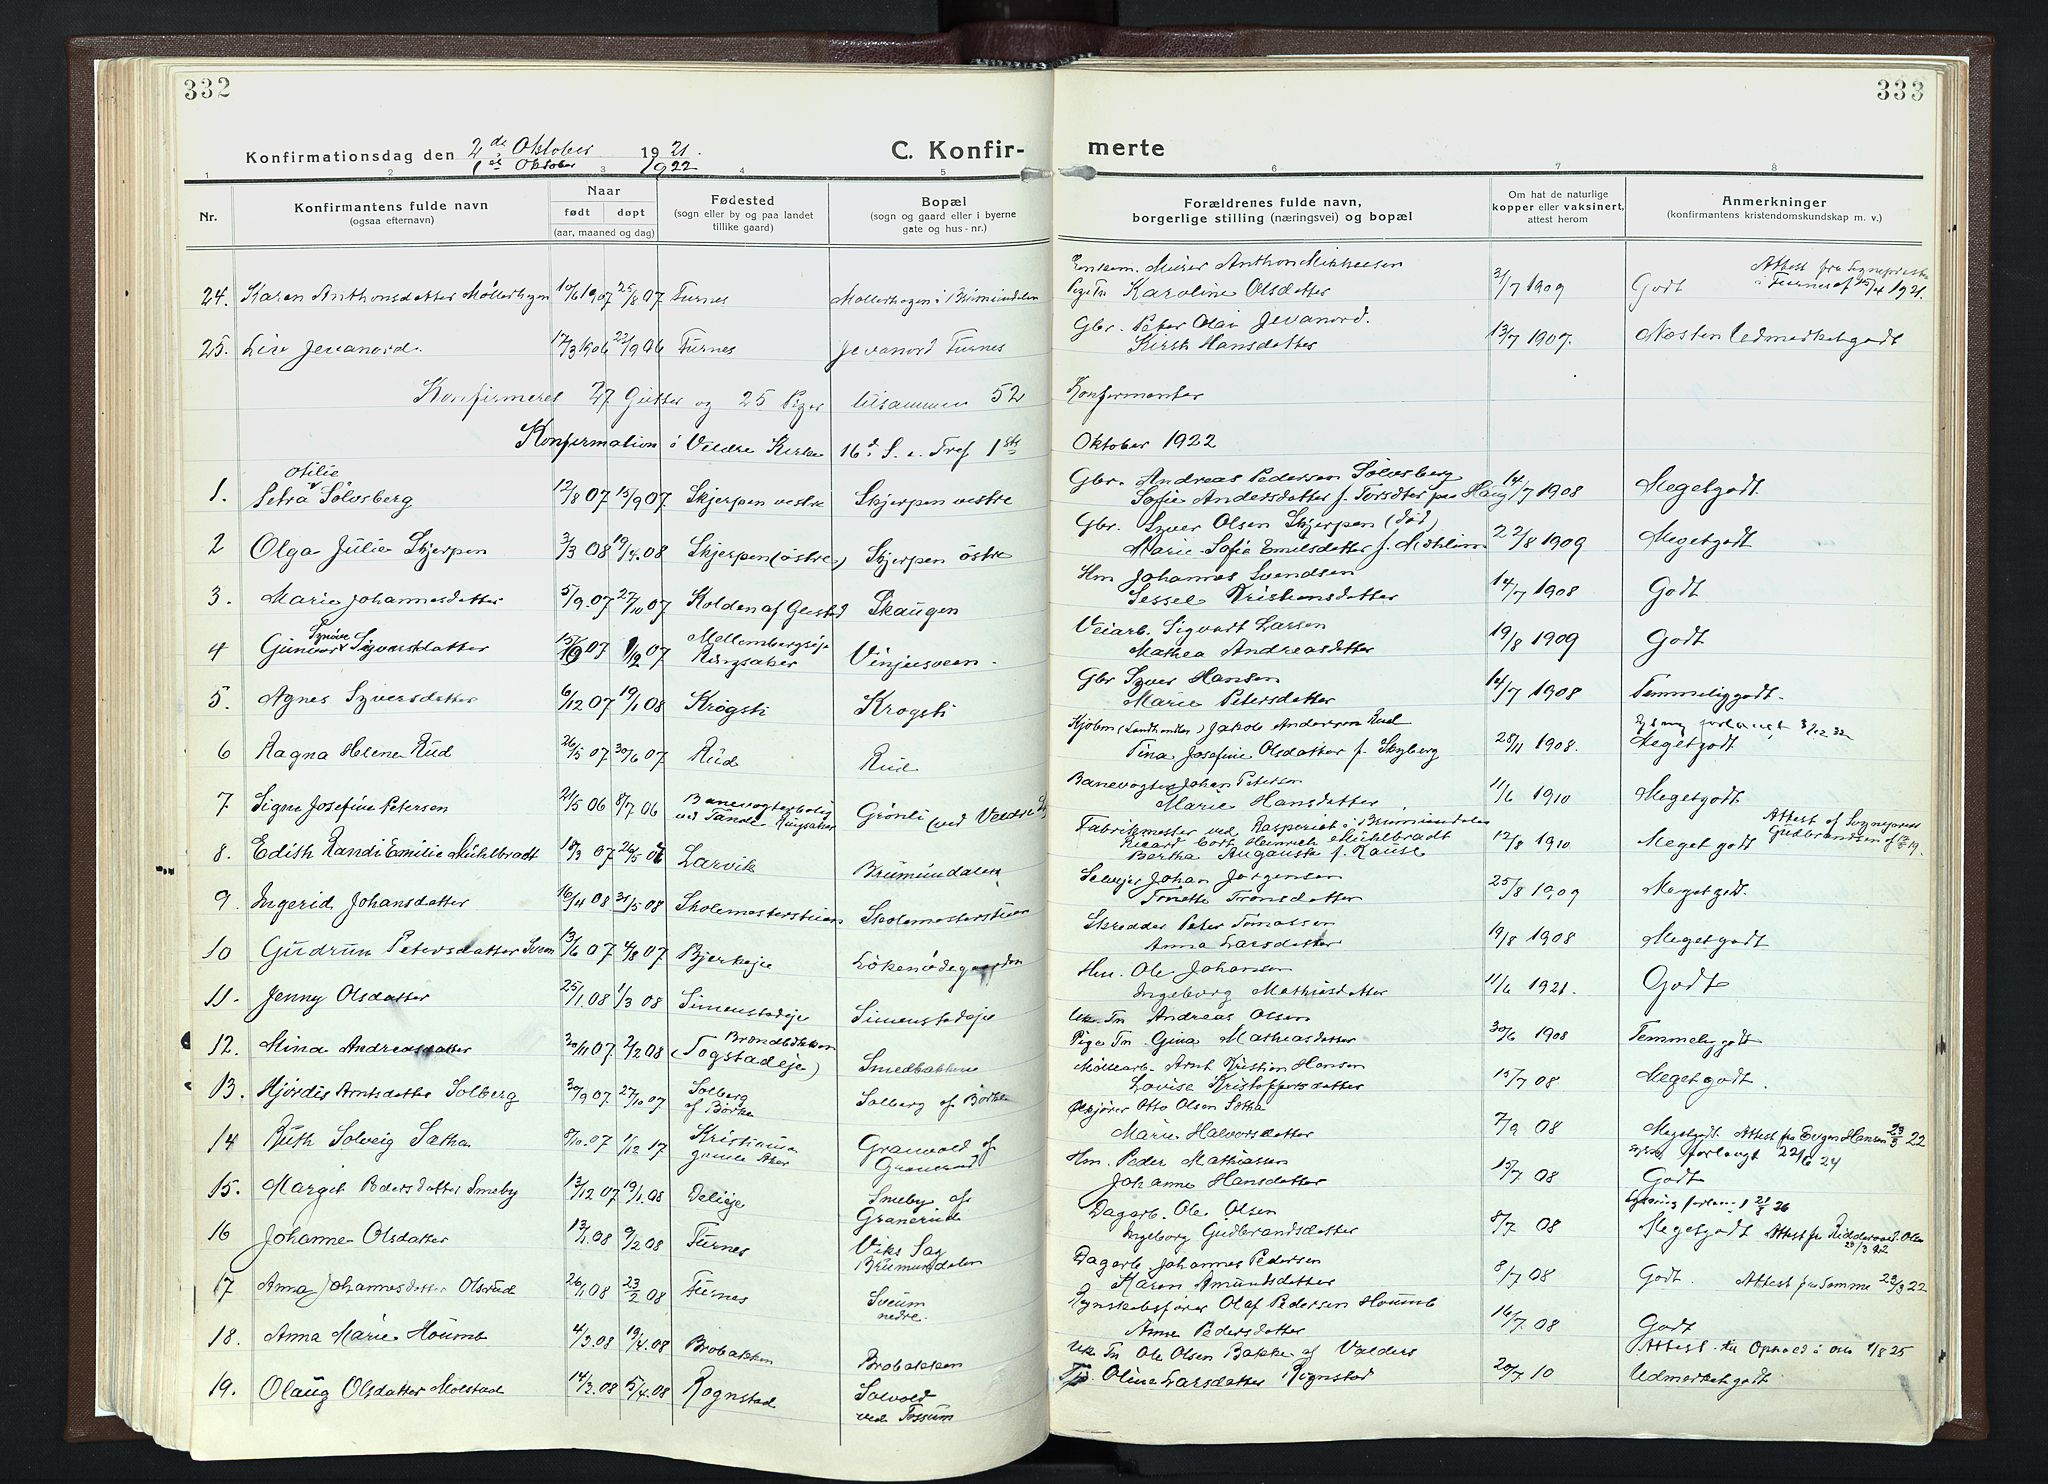 332
333
Konfirmationsdag den 2den Oktober 1921.
1ste Oktober 1922
C. Konfir-
merte
1 2 3 4 5 6 7 8
Nr.
Konfirmantens fulde navn
(ogsaa efternavn)
Naar
født døpt
(aar, maaned og dag)
Fødested
(sogn eller by og paa landet
tillike gaard)
Bopæl
(sogn og gaard eller i byerne
gate og hus-nr.)
Forældrenes fulde navn,
borgerlige stilling (næringsvei) og bopæl
Om hat de naturlige
kopper eller vaksinert,
attest herom
Anmerkninger
(konfirmantens kristendomskundskap m. v.)
24. Karen Anthonsdatter Møllerhagen 10/6 1907 25/8 07 Furnes Møllerhagen i Brumundalen
Murer Anthon Mikkelsen
Pige Tn Karoline Olsdatter 3/7 1909 Godt Attest fra Sogneprest
i Furnes af 15/4 1921.
25. Liv Jevanord 17/3 1906 22/9 06 Furnes Jevanord Furnes
Gbr. Peter Olai Jevanord.
Kirsti Hansdatter 13/7 1907. Næsten Udmerketgodt
Konfirmeret 27 Gutter og 25 Piger tilsammen 52 Konfirmanter
Konfirmation i Veldre Kirke 16d S. e. Tref 1ste Oktober 1922
1. Petra Otilie Sølvsberg 12/8 07 15/9 07. Skjerpen vestre Skjerpen vestre
Gbr. Andreas Pedersen Sølvsberg
Sofie Andersdatter f. Torsdtr paa Haug 14/7 1908 Megetgodt
2 Olga Julie Skjerpen 3/3 08 19/4 08 Skjerpen (østre) Skjerpen østre
Gbr. Syver Olsen Skjerpen (død)
Marie Sofie Emilsdatter f. Mæhlum 22/8 1909 Megetgodt
3. Marie Johannesdatter 5/9 07 27/10 07 Kolden af Gersted Skaugen
Hm Johannes Svendsen
Sessel Kristiansdatter 14/7 1908 Godt
4 Gunvor Synøve Sigvartdatter 07 1/12 07 Mellembergseje
Ringsaker Vinjusveen
Veiarb. Sigvart Larsen
Mathea Andreasdatter 19/8 1909 Godt
5. Agnes Syversdatter 6/12 07 19/1 08 Krøgsti Krogsti
Gbr Syver Hansen
Marie Petersdatter 14/7 1908 Temmeliggodt.
6 Ragna Helene Rud 26/5 07 30/6 07 Rud Rud
Kjøbm (Landhandler) Jakob Andersen Rud
Tina Josefine Olsdatter f. Skyberg 28/11 1908. Megetgodt
7 Signe Josefine Petersen 21/5 06 8/7 06 Banevogterbolig
ved Tande Ringsaker Grönli (ved Veldre St)
Banevogter Johan Petersen
Marie Hansdatter 11/6 1910 Megetgodt
8. Edith Randi Emilie Mühlbradt 18/3 07 26/5 07 Larvik Brumundalen
Fabrikmester ved Rasperiet i Brumundalen
Ricard Cort Heinrich Mühlbradt
Bertha Auguste f. Krause 12/8 1910 Meget godt Attest af Sogneprest
Gudbrandsen af
9. Ingerid Johansdatter 16/4 08 31/5 08 Skolemesterstuen Skolemesterstuen
Selvejer Johan Jørgensen
Tonette Tronsdatter 25/8 1909 Megetgodt.
10 Gudrun Petersdatter Sveen 13/6 07 4/8 07 Bjerkeje Løkenødegaarden
Skredder Peter Tomassen
Anna Larsdatter 19/8 1908 Megetgodt
11. Jenny Olsdatter 25/1 08 1/3 08 Simenstadeje Simenstadeje
Hm. Ole Johansen
Ingeborg Mathisdatter 11/6 1921. Godt
12. Mina Andreasdatter 30/11 07 2/2 08 Brøndbakken
(Togstadeje) Smedbakken
Uk. Tn Andreas Olsen
Pige Tn Gina Mathiasdatter 30/6 1908 Temmeliggodt
13. Hjørdis Arntsdatter Solberg 20/9 07 27/10 07 Solberg
af Børke Solberg af Børke
Møllearb. Arnt Kristian Hansen
Lovise Kristoffersdatter 15/7 08 Megetgodt.
14 Ruth Solveig Sætha 8/10 07 1/12 17 Kristiania
gamle Aker Granvold af
Granerud
Otto Olsen Sætha
Marie Halvorsdatter 7/9 08 Megetgodt. Attest fra Evgen Hansen 23/3 22
forlangt 22/6 24
15. Margit Pedersdatter Smeby 13/12 07 19/1 08 Delieje Smeby af
Granerud
Hm. Peder Mathiassen
Johanne Hansdatter 15/7 08 Godt
16 Johanne Olsdatter 13/1 08 9/2 08 Furnes Viks Sag
Brumundalen
Dagarb. Ole Olsen
Ingeborg Gudbrandsdatter 8/7 08 Megetgodt
17 Anna Johannesdatter Olsrud 26/1 08 23/2 08 Furnes Sveum
nedre.
Dagarb. Johannes Pedersen
Karen Amundsdatter 8/7 08 Godt. Attest fra Samme 29/3 22
18. Anna Marie Houmb 4/3 08 19/4 08 Brobakken Brobakken
Regnskabsfører Olaf Pedersen Houmb
Anne Pedersdatter 16/7 08 Godt
Attest til Ophold i Oslo 1/8 25
19. Olaug Olsdatter Molstad 14/3 08 5/4 08 Rognstad Solvold
ved Tossum
Uk Tn Ole Olsen Bakke af Valders
Oline Larsdatter Rognstad 20/7 10 Udmerketgodt